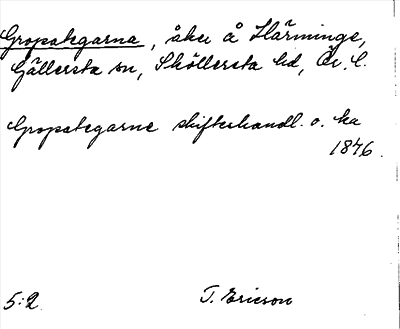 Gropategarna, åker å Härminge,
Gällersta sn, Sköllersta hd, Ör. l.
Gropategarne skifteshandl. o. ka
1846.
5:2. T. Ericson